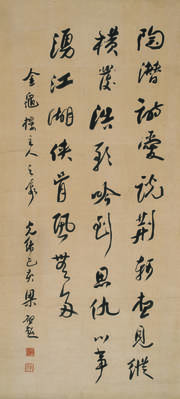 陶潛詩愛說荊軻想見縱
橫發浩歌吟到恩仇心事
湧江湖俠骨無多
金龜樓主人之屬
光緒己亥梁啟超